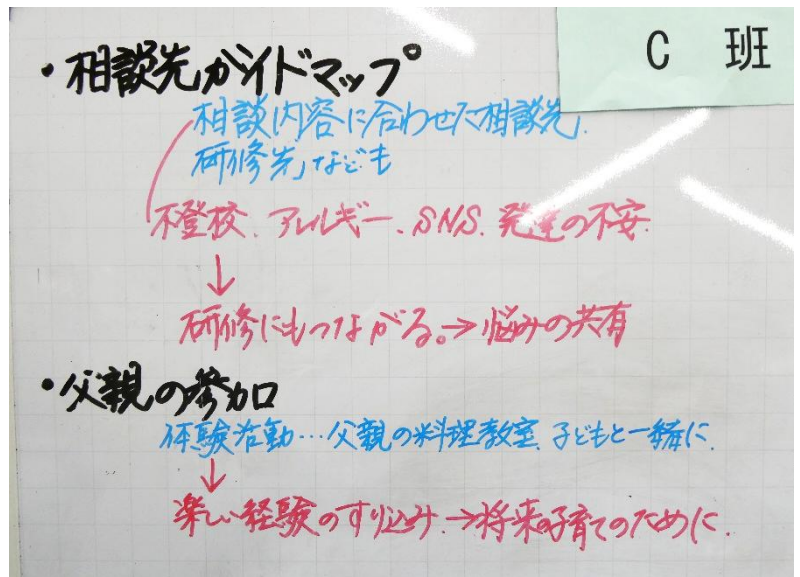 C 班
・相談先ガイドマップ
相談内容に合わせた相談先.
研修先なども
不登校、アレルギー、SNS、発達の不安.
↓
研修にもつながる。→悩みの共有
・父親の参加
体験活動…父親の料理教室、子どもと一緒に.
↓
楽しい経験のすり込み.→将来の子育てのために.